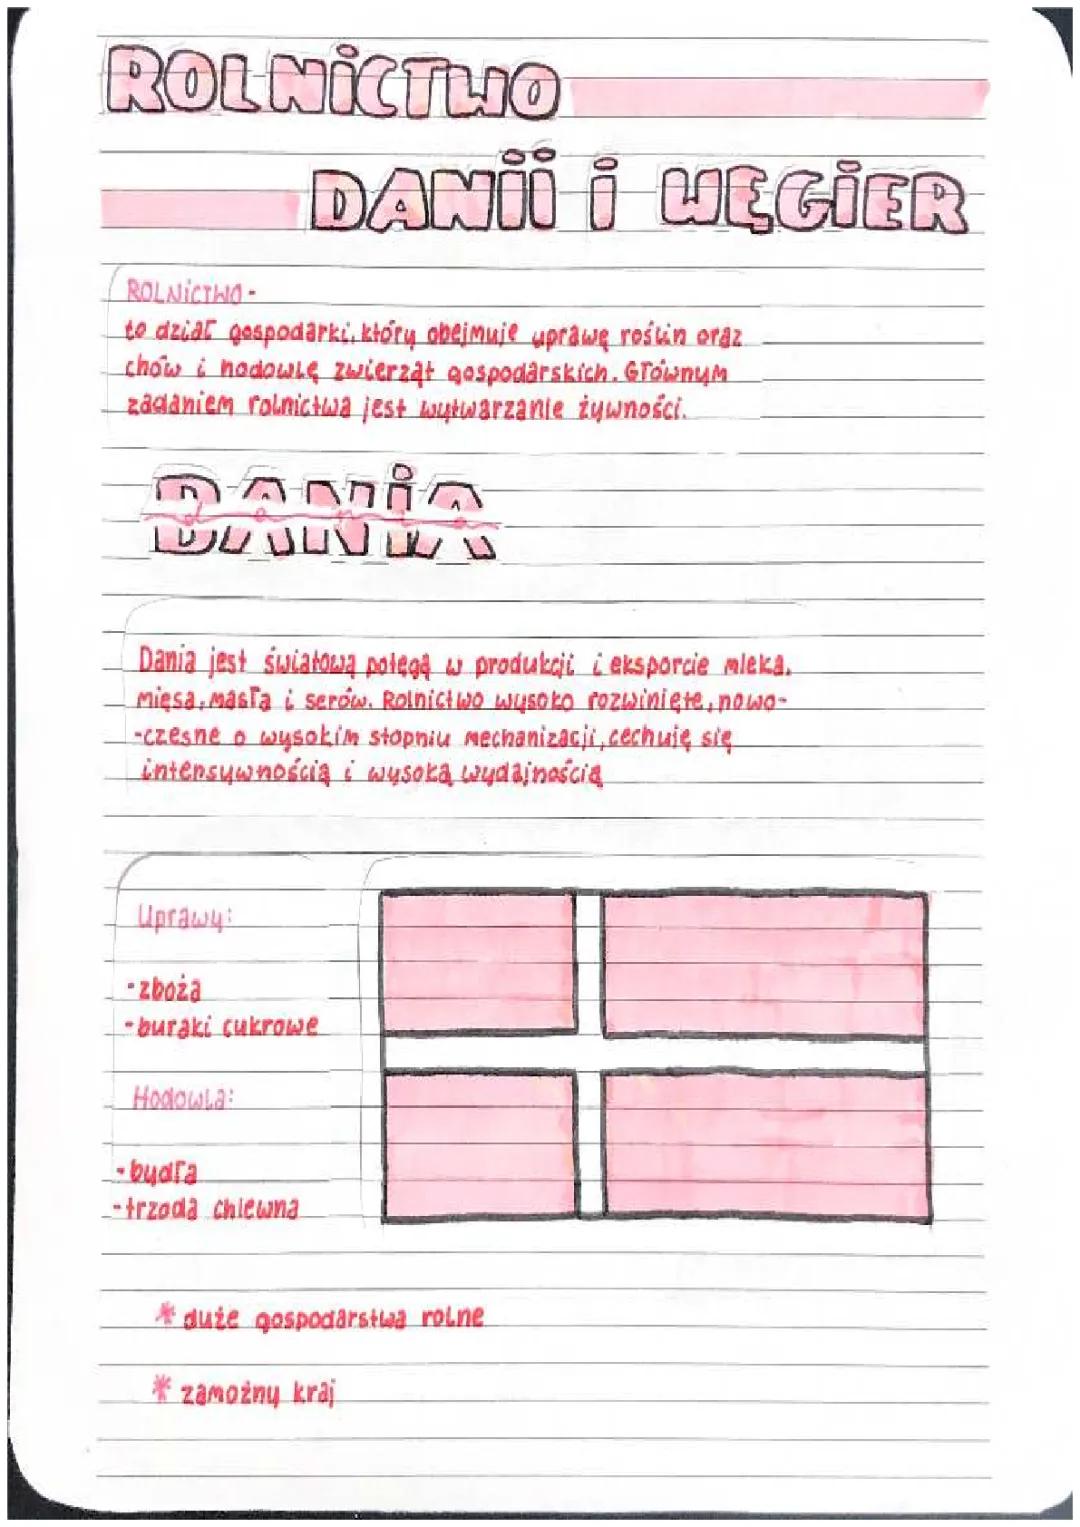 ROLNICTWO
DANII I WĘGIER
ROLNICTWO-
to dział gospodarki, który obejmuje uprawę roślin oraz
chów i hodowlę zwierząt gospodarskich. Głównym
zadaniem rolnictwa jest wytwarzanie żywności.
DANIA
dania
Dania jest światową potęgą w produkcji i eksporcie mleka,
mięsa, masła i serów. Rolnictwo wysoko rozwinięte, nowo-
-czesne o wysokim stopniu mechanizacji, cechuję się
intensywnością i wysoką wydajnością
Uprawy:
-zboża
-buraki cukrowe
Hodowla:
-bydła
-trzoda chlewna
* duże gospodarstwa rolne
* zamożny kraj